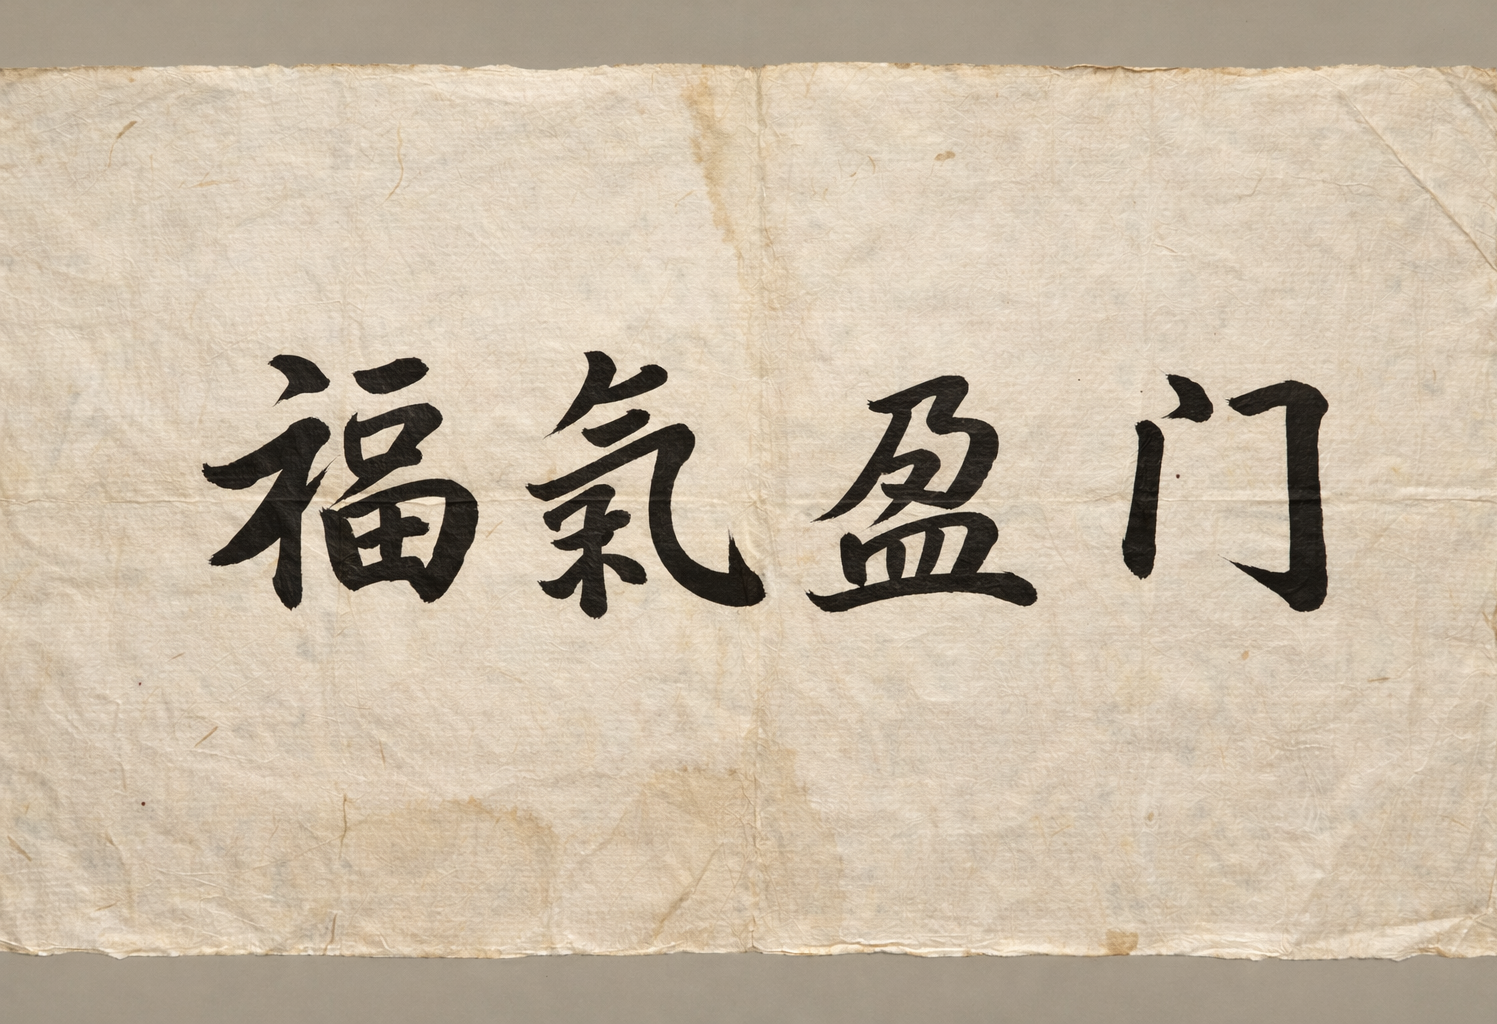 福氣盈门